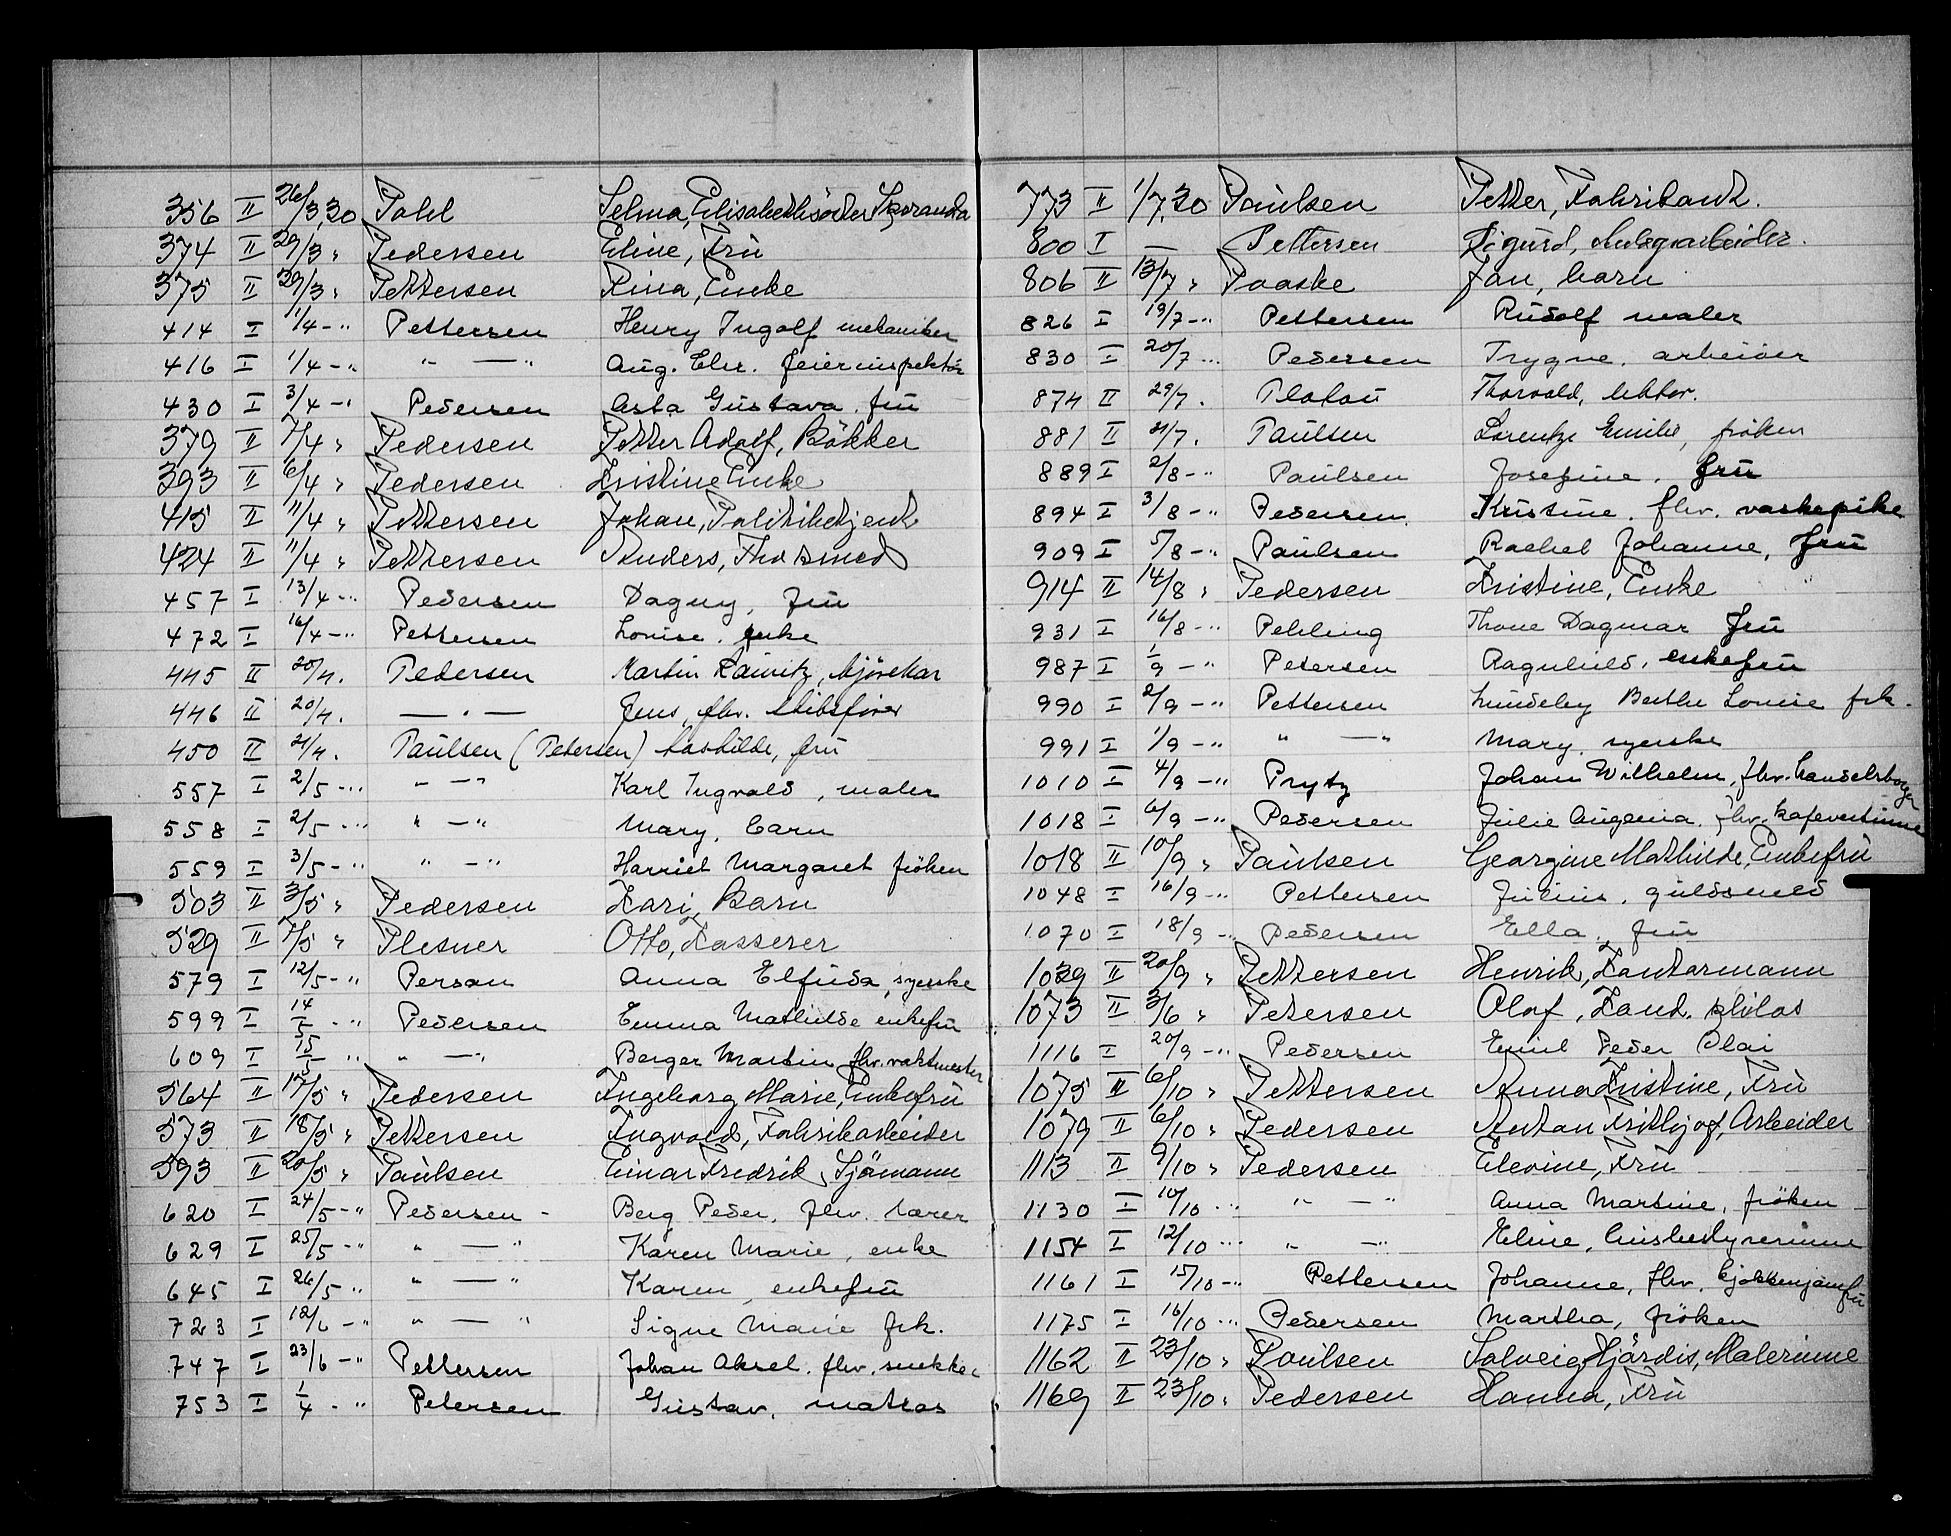 356 II 26/3 30 Pohl Selma, Elisabethsöster
374 II 29/3 " Pedersen Eline, Fru
375 II 29/3 " Pettersen Rina, Enke
414 I 1/4 - " Pettersen Henry Ingolf mekaniker
416 I 1/4 - " " — " Aug. Ehr. feierinspektör
430 I 3/4 - " Pedersen Asta Gustava. fru
379 II 7/4 " Pedersen Petter Adolf, Bökker
393 II 6/4 " Pedersen Kristine Enke
415 II 11/4 " Pettersen Johan, Politibetjent
424 II 11/4 " Pettersen Anders,
457 I 13/4 - " Pedersen Dagny, fru
472 I 16/4 - " Pettersen Louise. enke
445 II 20/4. Pedersen Martin
446 II 20/4. — " — Jens, fhv. skibsfører
450 II 21/4. Paulsen (Petersen) Mathilde, fru
557 I 2/5 - " " — " Karl Ingvald, maler
558 I 2/5 - " " — " Mary, barn
559 I 3/5 - " " — " Harriet Margaret fröken
503 II 3/5 " Pedersen Kari, Barn
529 II 7/5 " Plesner Otto, Kasserer
579 I 12/5 - " Person Anna Elfrida, syerske
599 I 14/5 - " Pedersen Emma Mathilde enkefru
609 I 15/5 " " — " Berger Martin fhv. vaktmester
564 II 17/5 " Pedersen Ingeborg Marie, Enkefru
573 II 18/5 " Pettersen Ingvald, Fabrikarbeider
593 II 20/5 " Paulsen Einar Fredrik, Sjömann
620 I 24/5 - " Pedersen - Berg Peder, fhv. lærer
629 I 25/5 - " " — " Karen Marie, enke
645 I 26/5 " " — " Karen, enkefru
723 I 12/6 - " " — " Signe Marie frk.
747 I 23/6 - " Pettersen Johan Aksel. fhv. snekker
753 I 1/4 - " Petersen Gustav, matros
773 II 1/7 30 Paulsen Petter, Fabrikant.
800 I — Pettersen Sigurd, Anlegsarbeider.
806 II 13/7 " Paaske Jan, barn
826 I 19/7 - " Pettersen Rudolf maler
830 I 20/7 - " Pedersen Trygve, arbeider
874 II 29/7. Platou Thorvald, lektor.
881 II 21/7. Paulsen Lorentze Emilie, fröken
889 I 2/8 - " Paulsen Josefine, fru
894 I 3/8 - " Pedersen. Kristine. fhv. vaskepike
909 I 5/8 - " Paulsen Rachel Johanne, fru
914 II 14/8 " Pedersen Kristine, Enke
931 I 16/8 - " Pehling Thone Dagmar fru
987 I 1/9 - " Petersen Ragnhild, enkefru
990 I 2/9 - " Pettersen Lundeby Berthe Louise frk.
991 I 1/9 - " " — " Mary, syerske
1010 I 4/9 - " Prytz Johan Wilhelm, fhv. handelsborger
1018 I 6/9 - " Pedersen Julie Augenia. fhv. kafevertinne
1018 II 10/9 " Paulsen Georgine Mathilde, Enkefru
1048 I 16/9 - " Pettersen Julius, guldsmed
1070 I 18/9 - " Pedersen Ella, fru
1039 II 20/9 " Pettersen Henrik, Kontormann
1073 II 3/6 " Petersen Olaf, Kand. philos
1116 I 20/9 - " Pedersen Emil Peder Olai
1075 II 6/10 " Pettersen Anna Kristine, Fru
1079 II 6/10 " Pedersen Anton Fritbjof, Arbeider
1113 II 9/10 " Pedersen Elevine, Fru
1130 I 10/10 - " " — " Anna Martine, fröken
1154 I 12/10 - " " — " Eline, husbestyrerinne
1161 I 15/10 - " Pettersen Johanne, fhv. kjökkenjomfru
1175 I 16/10 - " Pedersen Martha, fröken
1162 II 23/10 " Poulsen Solveig Hjördis, Malerinne
1169 II 23/10 " Pedersen Hanna, Fru